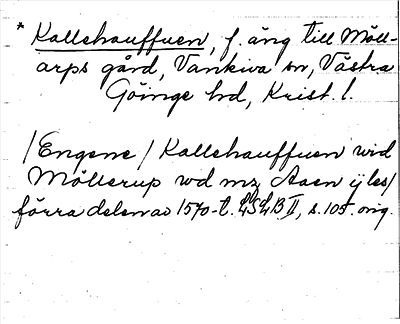 * Kallehauffuen, f. äng till Möll-
arps gård, Vankiva sn, Västra
Göinge hd, Krist. l.
/Engene/ Kallehauffuen wid
Möllerup wd mz Aaen ij les/
förra delen av 1570-t. LSLB II, s. 105. orig.